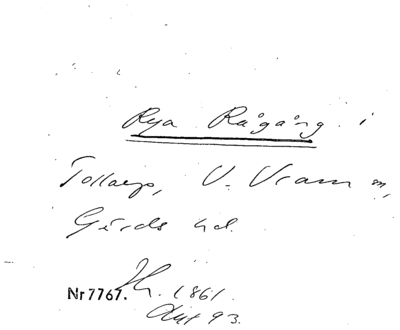 Rya Rågång i
Tollarp, V. Vram m,
Gärds hd.
Nr 7767. 1861.
93.